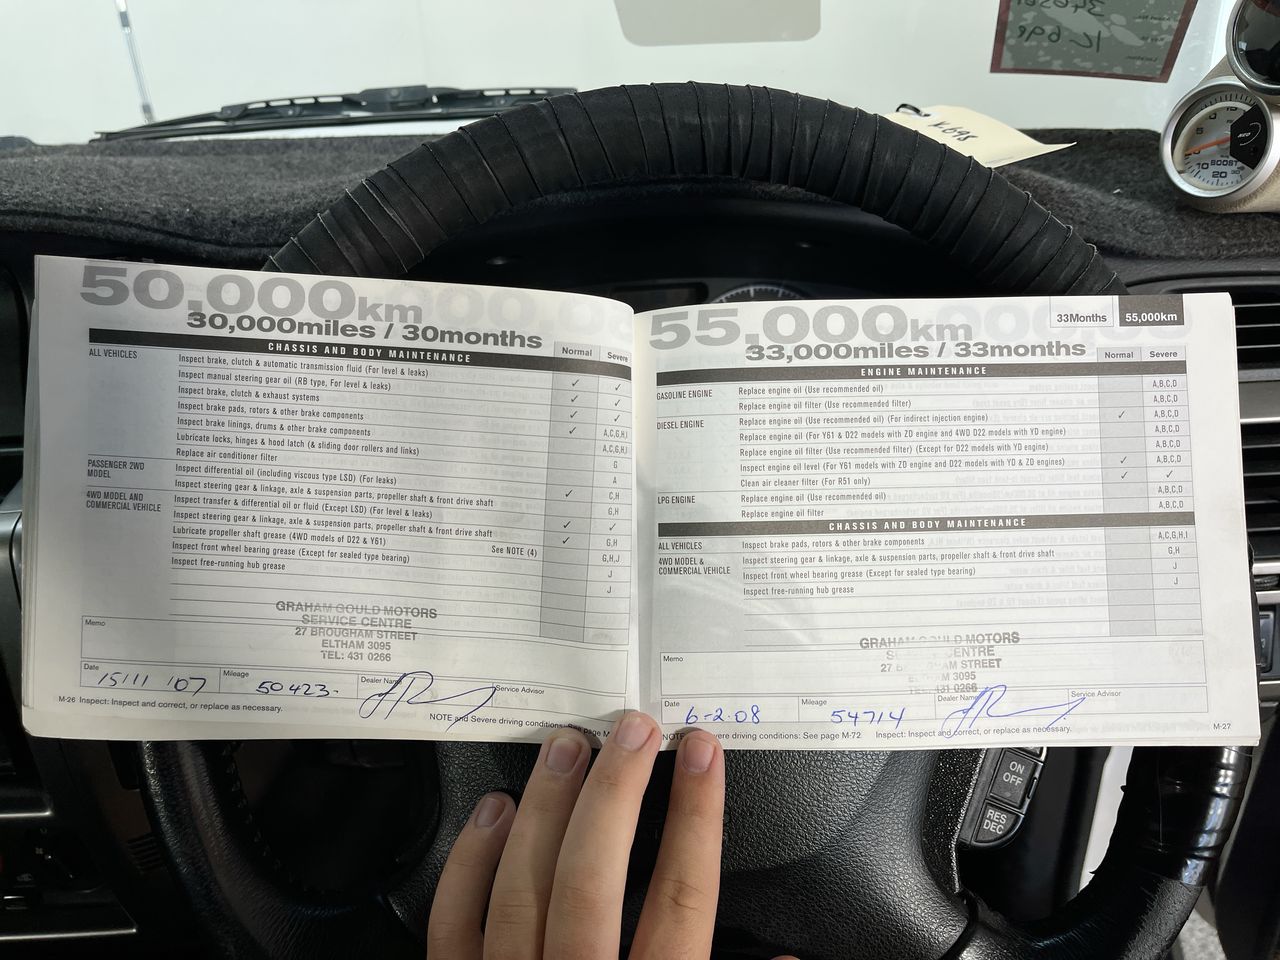 K698
BOOST
50,000km
30,000miles / 30months
CHASSIS AND BODY MAINTENANCE
Normal
Severe
ALL VEHICLES
Inspect brake, clutch & automatic transmission fluid (For level & leaks)
✓ ✓
Inspect manual steering gear oil (RB type, For level & leaks)
✓ ✓
Inspect brake, clutch & exhaust systems
✓ ✓
Inspect brake pads, rotors & other brake components
✓ A,C,G,H,I
Inspect brake linings, drums & other brake components
A,C,G,H,I
Lubricate locks, hinges & hood latch (& sliding door rollers and links)
G
Replace air conditioner filter
A
PASSENGER 2WD MODEL
Inspect differential oil (including viscous type LSD) (For leaks)
✓ C,H
Inspect steering gear & linkage, axle & suspension parts, propeller shaft & front drive shaft
G,H
4WD MODEL AND COMMERCIAL VEHICLE
Inspect transfer & differential oil or fluid (Except LSD) (For level & leaks)
✓ ✓
Inspect steering gear & linkage, axle & suspension parts, propeller shaft & front drive shaft
✓ G,H
Lubricate propeller shaft grease (4WD models of D22 & Y61)
See NOTE (4)
G,H,J
Inspect front wheel bearing grease (Except for sealed type bearing)
J
Inspect free-running hub grease
J
GRAHAM GOULD MOTORS
SERVICE CENTRE
27 BROUGHAM STREET
ELTHAM 3095
TEL: 431 0266
Memo
Date 15/11/07
Mileage 50423-
Dealer Name
Service Advisor
M-26 Inspect: Inspect and correct, or replace as necessary.
NOTE and Severe driving conditions: See page M
55,000km
33,000miles / 33months
33Months
55,000km
ENGINE MAINTENANCE
Normal
Severe
GASOLINE ENGINE
Replace engine oil (Use recommended oil)
A,B,C,D
Replace engine oil filter (Use recommended filter)
A,B,C,D
DIESEL ENGINE
Replace engine oil (Use recommended oil) (For indirect injection engine)
✓ A,B,C,D
Replace engine oil (For Y61 & D22 models with ZD engine and 4WD D22 models with YD engine)
A,B,C,D
Replace engine oil filter (Use recommended filter) (Except for D22 models with YD engine)
A,B,C,D
Inspect engine oil level (For Y61 models with ZD engine and D22 models with YD & ZD engines)
✓ A,B,C,D
Clean air cleaner filter (For R51 only)
✓ ✓
LPG ENGINE
Replace engine oil (Use recommended oil)
A,B,C,D
Replace engine oil filter
A,B,C,D
CHASSIS AND BODY MAINTENANCE
ALL VEHICLES
Inspect brake pads, rotors & other brake components
A,C,G,H,I
4WD MODEL & COMMERCIAL VEHICLE
Inspect steering gear & linkage, axle & suspension parts, propeller shaft & front drive shaft
G,H
Inspect front wheel bearing grease (Except for sealed type bearing)
J
Inspect free-running hub grease
J
Memo
GRAHAM GOULD MOTORS
CENTRE
27 STREET
ELTHAM 3095
431 0266
Date 6-2-08
Mileage 54714
Dealer Name
Service Advisor
NOTE Severe driving conditions: See page M-72 Inspect: Inspect and correct, or replace as necessary.
M-27
ON
OFF
RES
DEC